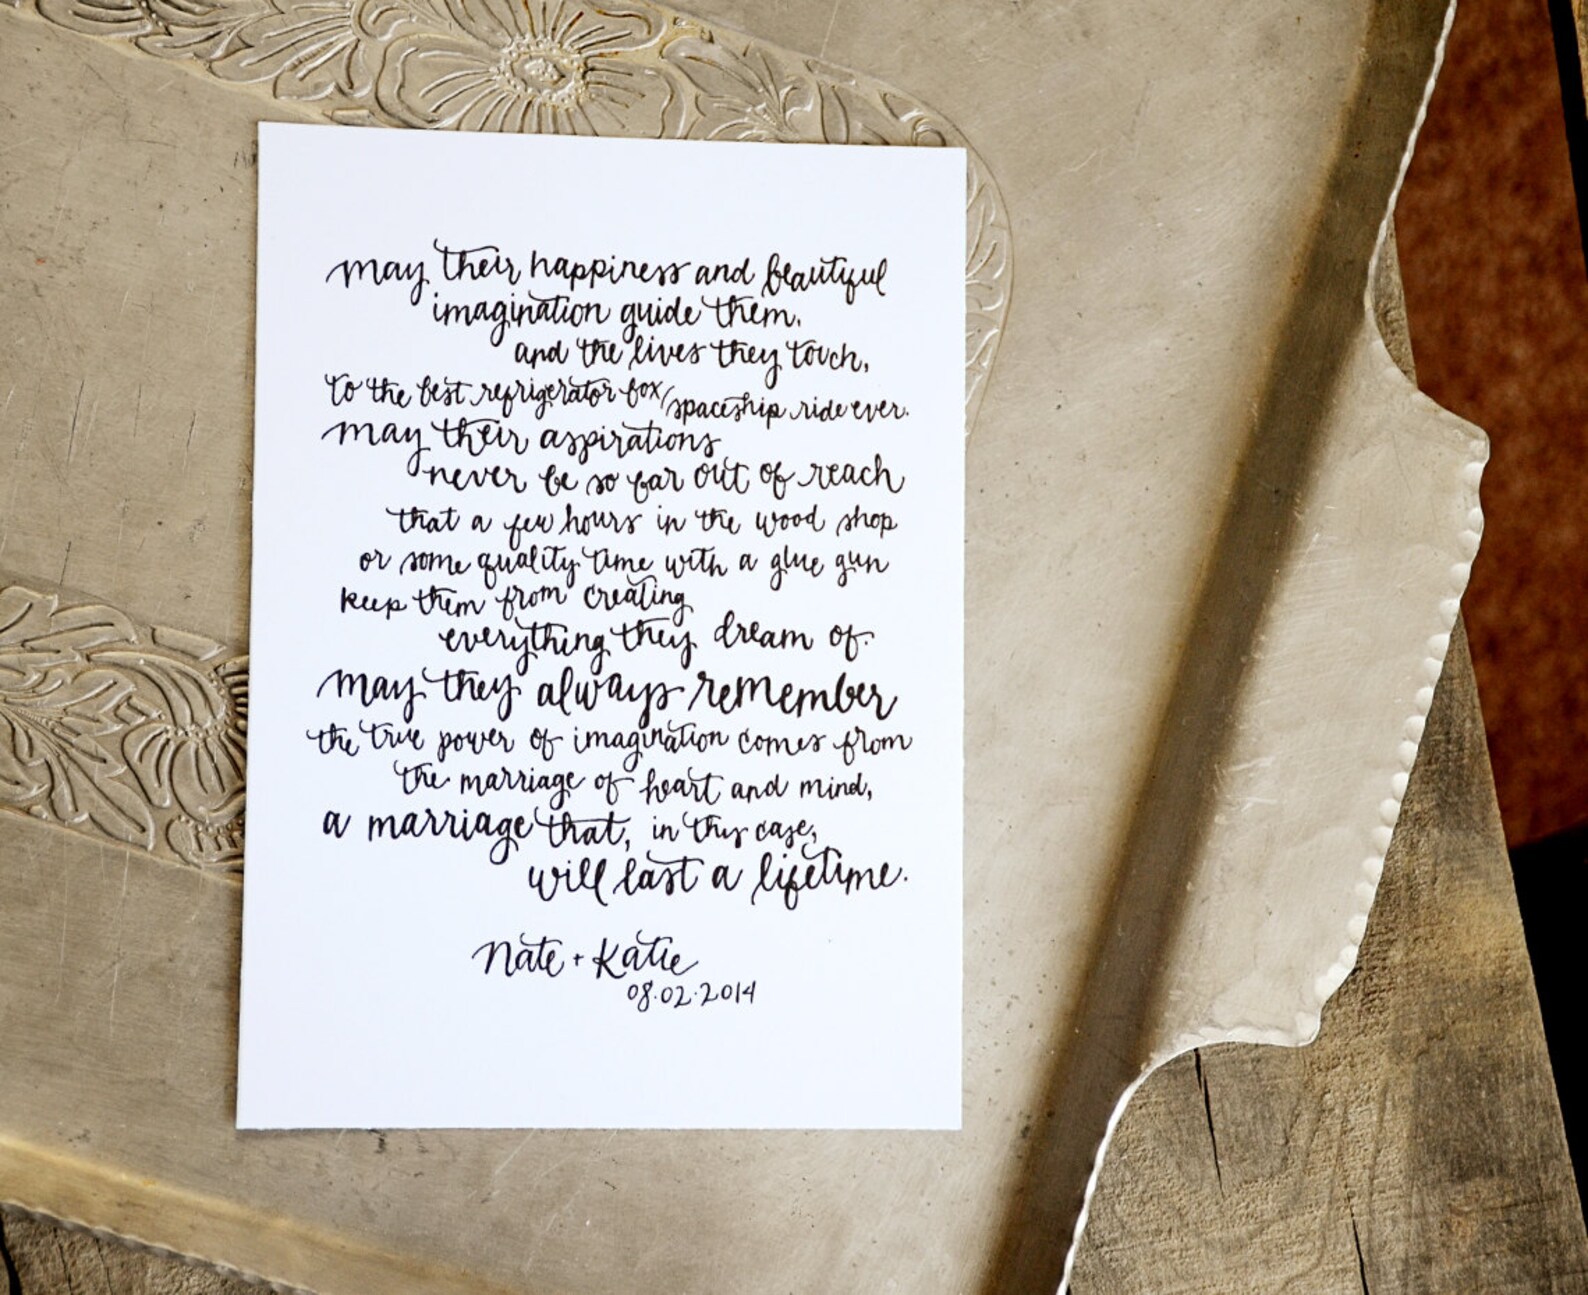 may their happiness and beautiful
imagination guide them,
and the lives they touch,
to the best refrigerator box/spaceship ride ever.
may their aspirations
never be so far out of reach
that a few hours in the wood shop
or some quality time with a glue gun
keep them from creating
everything they dream of.
may they always remember
the true power of imagination comes from
the marriage of heart and mind,
a marriage that, in this case,
will last a lifetime.
Nate + Katie
08.02.2014